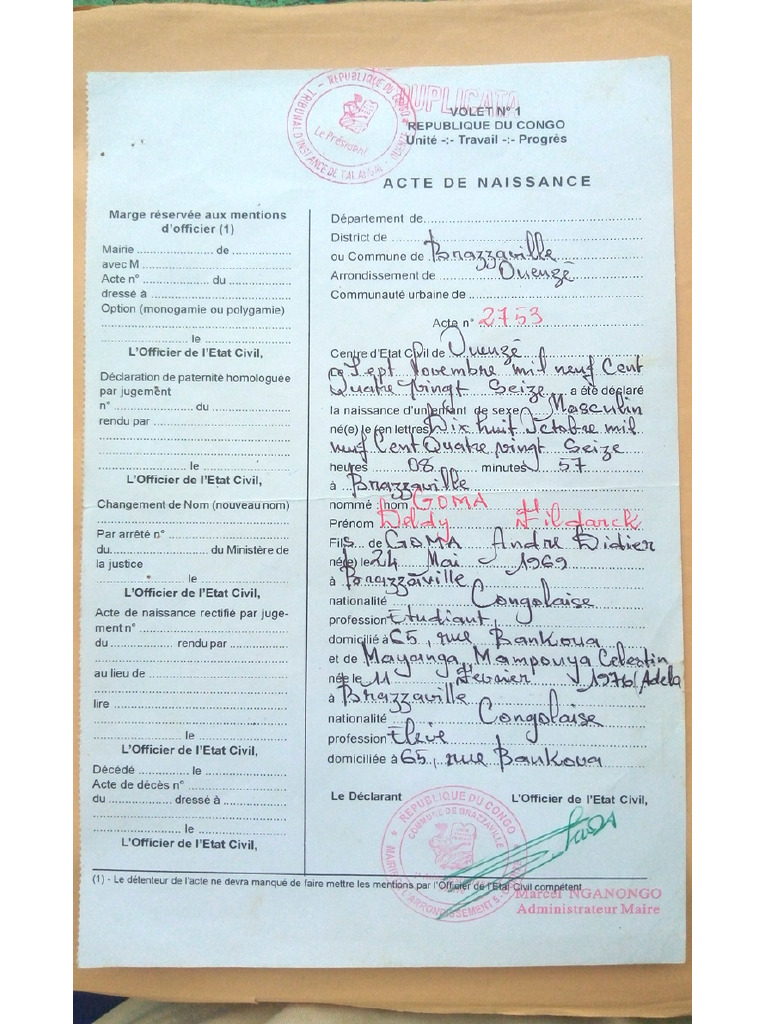 DUPLICATA
REPUBLIQUE DU CONGO
TRIBUNAL D'INSTANCE DE TALANGAI - OUENZE
Le Président
VOLET N° 1
REPUBLIQUE DU CONGO
Unité -:- Travail -:- Progrès
ACTE DE NAISSANCE
Marge réservée aux mentions
d'officier (1)
Mairie ........................ de ..................
avec M ................................................
Acte n° ........................ du ..................
dressé à .............................................
Option (monogamie ou polygamie)
............................................................
............................ le ........................
L'Officier de l'Etat Civil,
Déclaration de paternité homologuée
par jugement
n° ........................ du ........................
rendu par ...........................................
............................................................
............................ le ........................
L'Officier de l'Etat Civil,
Changement de Nom (nouveau nom)
............................................................
Par arrêté n° ......................................
du........................ du Ministère de
la justice
............................ le ........................
L'Officier de l'Etat Civil,
Acte de naissance rectifié par juge-
ment n° .............................................
du .................. rendu par ..................
............................................................
au lieu de ..........................................
............................................................
lire .....................................................
............................................................
............................ le ........................
L'Officier de l'Etat Civil,
Décédé .............. le ........................
Acte de décès n° ................................
du .................. dressé à ..................
............................................................
............................ le ........................
L'Officier de l'Etat Civil,
Département de............................................................
District de ............................................................
ou Commune de Brazzaville
Arrondissement de Ouenzé
Communauté urbaine de ............................................
Acte n° 2753
Centre d'Etat Civil de Ouenzé
Le Sept Novembre mil neuf Cent
Quatre vingt Seize a été déclaré
la naissance d'un enfant de sexe Masculin
né(e) le (en lettres) Dix huit Octobre mil
neuf Cent Quatre vingt Seize
heures 08 minutes 57
à Brazzaville
nommé : nom GOMA
Prénom Deldy Fildarck
Fils de GOMA André Didier
né(e) le 24 Mai 1969
à Brazzaville
nationalité Congolaise
profession Etudiant,
domicilié à 65, rue Bankoua
et de Mayanga Mampouya Celestin
née le 11 Février 1976 / Adela
à Brazzaville
nationalité Congolaise
profession Elève
domiciliée à 65, rue Bankoua
Le Déclarant L'Officier de l'Etat Civil,
REPUBLIQUE DU CONGO
COMMUNE DE BRAZZAVILLE
Marcel NGANONGO
Administrateur Maire
(1) - Le détenteur de l'acte ne devra manqué de faire mettre les mentions par l'Officier de l'Etat Civil compétent